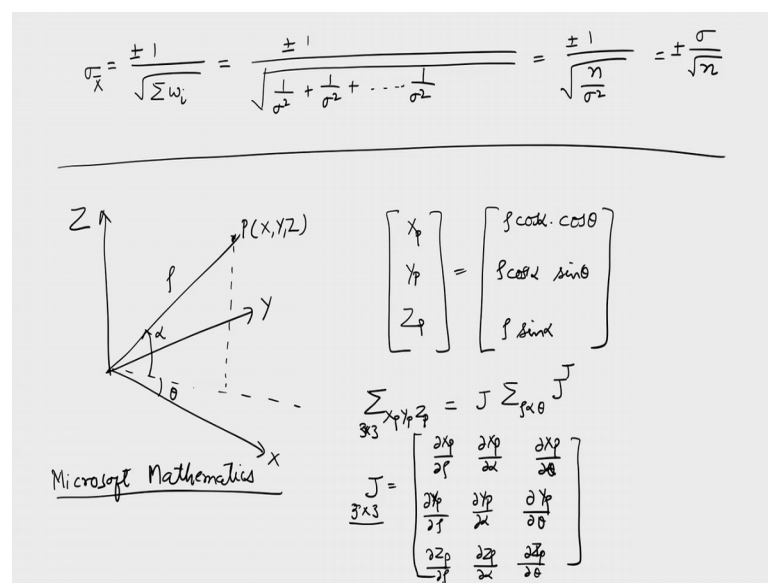 σ_x̄ = ±1/√(Σw_i) = ±1/√(1/σ² + 1/σ² + ---- 1/σ²) = ±1/√(n/σ²) = ± σ/√n
Z
P(X,Y,Z)
ρ
Y
α
θ
X
Microsoft Mathematics
[X_p Y_p Z_p] = [ρcosα·cosθ ρcosα sinθ ρ sinα]
Σ_XpYpZp = J Σ_ραθ J^J
3×3
J = [∂Xp/∂ρ ∂Xp/∂α ∂Xp/∂θ
3×3
∂Yp/∂ρ ∂Yp/∂α ∂Yp/∂θ
∂Zp/∂ρ ∂Zp/∂α ∂Zp/∂θ]